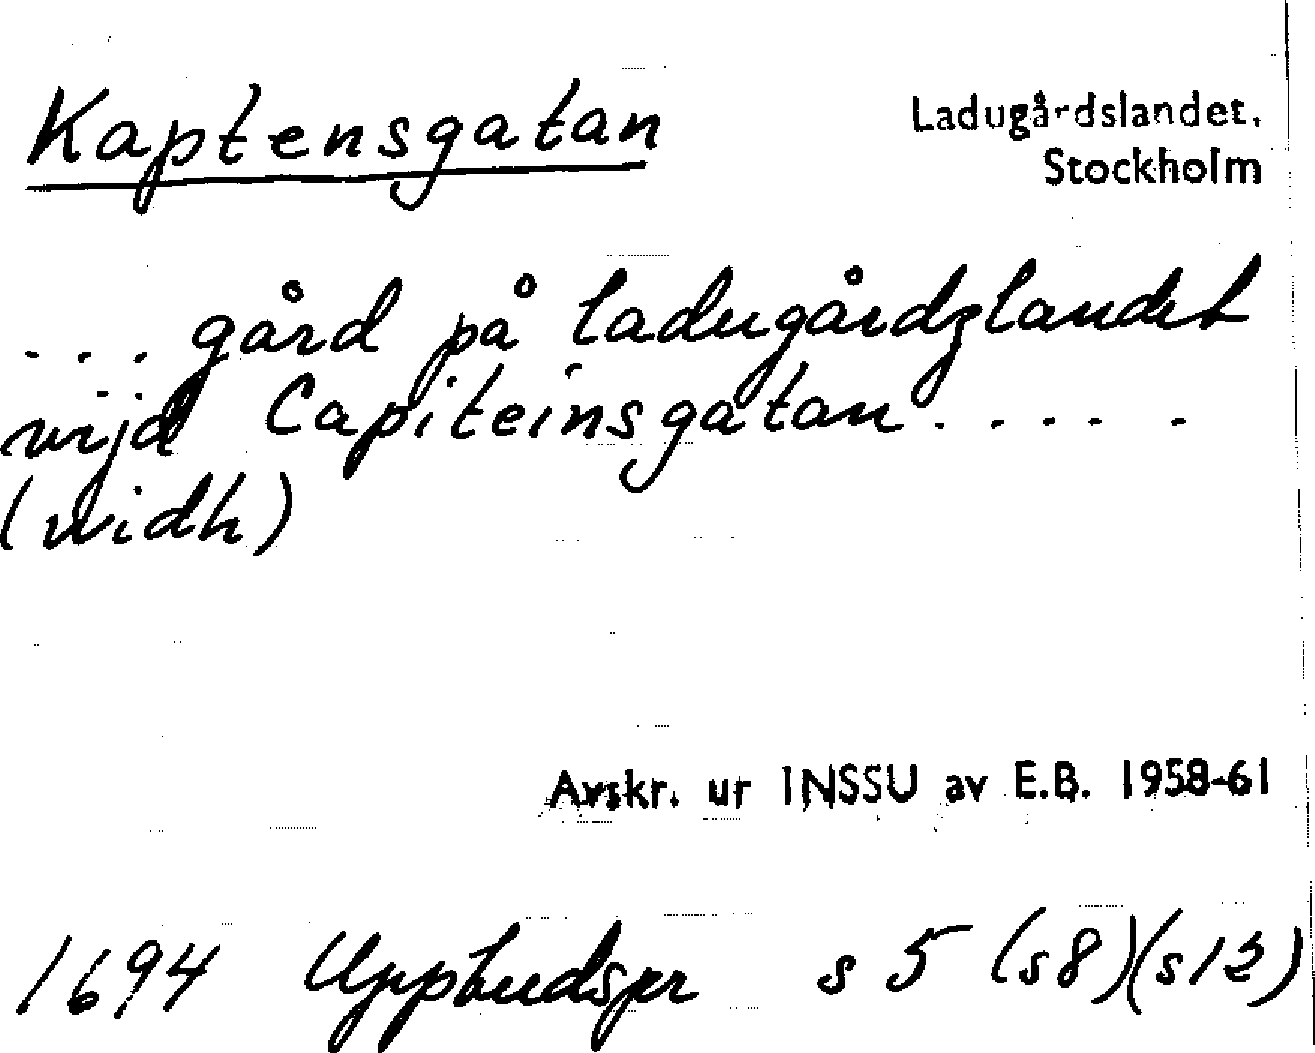 Kaptensgatan
Ladugårdslandet.
Stockholm
... gård på ladugårdzlandet
vijd Capiteinsgatan.....
(widh)
Avskr. ur INSSU av E.B. 1958-61
1694 Uppbudspr s 5 (s8)(s12)